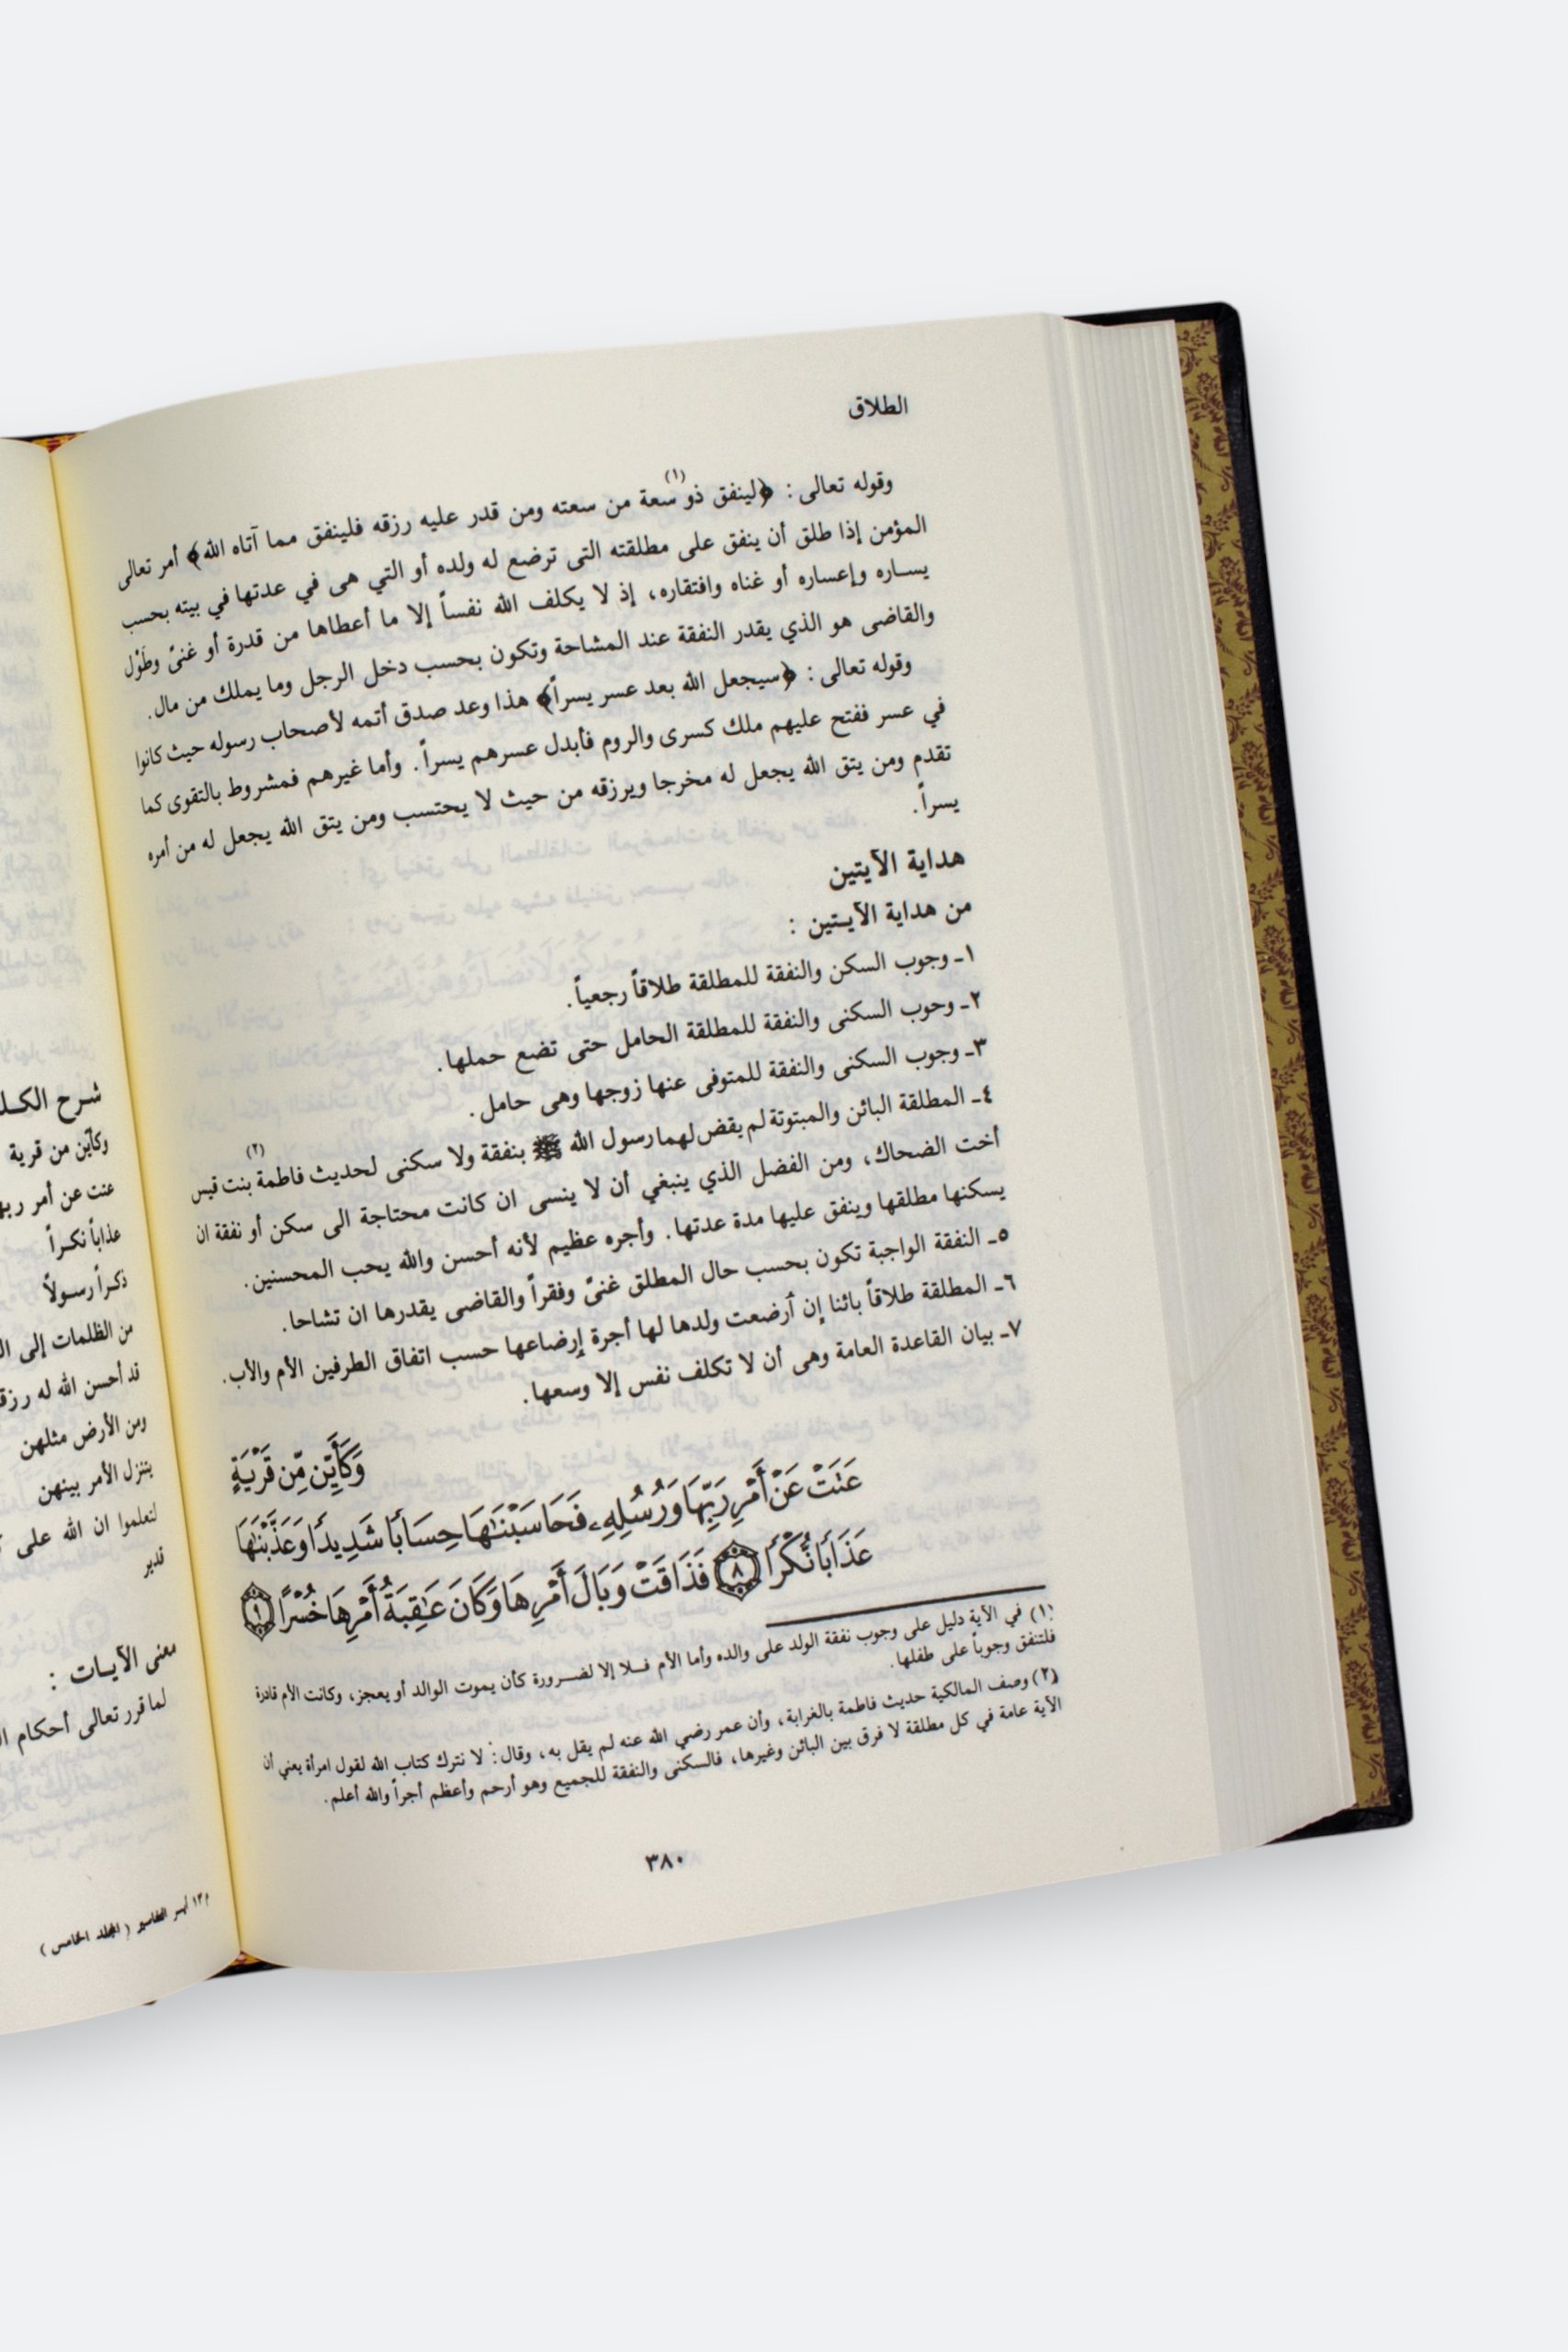 الطلاق
وقوله تعالى : ﴿لينفق ذو(١) سعة من سعته ومن قدر عليه رزقه فلينفق مما آتاه الله﴾ أمر تعالى
المؤمن إذا طلق أن ينفق على مطلقته التى ترضع له ولده أو التي هى في عدتها في بيته بحسب
يساره وإعساره أو غناه وافتقاره، إذ لا يكلف الله نفساً إلا ما أعطاها من قدرة أو غنىً وطَوْل
والقاضى هو الذي يقدر النفقة عند المشاحة وتكون بحسب دخل الرجل وما يملك من مال.
وقوله تعالى : ﴿سيجعل الله بعد عسر يسراً﴾ هذا وعد صدق أتمه لأصحاب رسوله حيث كانوا
في عسر ففتح عليهم ملك كسرى والروم فأبدل عسرهم يسراً. وأما غيرهم فمشروط بالتقوى كما
تقدم ومن يتق الله يجعل له مخرجا ويرزقه من حيث لا يحتسب ومن يتق الله يجعل له من أمره
يسراً.
هداية الآيتين
من هداية الآيـتين :
١ـ وجوب السكن والنفقة للمطلقة طلاقاً رجعياً.
٢ـ وحوب السكنى والنفقة للمطلقة الحامل حتى تضع حملها.
٣ـ وجوب السكنى والنفقة للمتوفى عنها زوجها وهى حامل.
٤ـ المطلقة البائن والمبتوتة لم يقض لهما رسول الله ﷺ بنفقة ولا سكنى لحديث فاطمة(٢) بنت قيس
أخت الضحاك، ومن الفضل الذي ينبغي أن لا ينسى ان كانت محتاجة الى سكن أو نفقة ان
يسكنها مطلقها وينفق عليها مدة عدتها. وأجره عظيم لأنه أحسن والله يحب المحسنين.
٥ـ النفقة الواجبة تكون بحسب حال المطلق غنىً وفقراً والقاضى يقدرها ان تشاحا.
٦ـ المطلقة طلاقاً بائنا إن أرضعت ولدها لها أجرة إرضاعها حسب اتفاق الطرفين الأم والأب.
٧ـ بيان القاعدة العامة وهى أن لا تكلف نفس إلا وسعها.
وَكَأَيِّن مِّن قَرْيَةٍ
عَتَتْ عَنْ أَمْرِ رَبِّهَا وَرُسُلِهِۦ فَحَاسَبْنَٰهَا حِسَابًا شَدِيدًا وَعَذَّبْنَٰهَا
عَذَابًا نُّكْرًا ٨ فَذَاقَتْ وَبَالَ أَمْرِهَا وَكَانَ عَٰقِبَةُ أَمْرِهَا خُسْرًا ٩
(١) في الآية دليل على وجوب نفقة الولد على والده وأما الأم فـلا إلا لضـرورة كأن يموت الوالد أو يعجز، وكانت الأم قادرة
فلتنفق وجوباً على طفلها.
(٢) وصف المالكية حديث فاطمة بالغرابة، وأن عمر رضي الله عنه لم يقل به، وقال: لا نترك كتاب الله لقول امرأة يعني أن
الآية عامة في كل مطلقة لا فرق بين البائن وغيرها، فالسكنى والنفقة للجميع وهو أرحم وأعظم أجراً والله أعلم.
٣٨٠
شـرح
وكأين من قرية
عنت عن أمر
عذاباً نكـراً
ذكـراً رسـولاً
من الظلمات إلى
قد أحسن الله له
ومن الأرض مثلهن
يتنزل الأمر بينهن
لتعلموا ان الله على
قدير
معنى الآيـات :
لما قرر تعالى أحكام
م١٣ أيسر التفاسير ( المجلد الخامس )